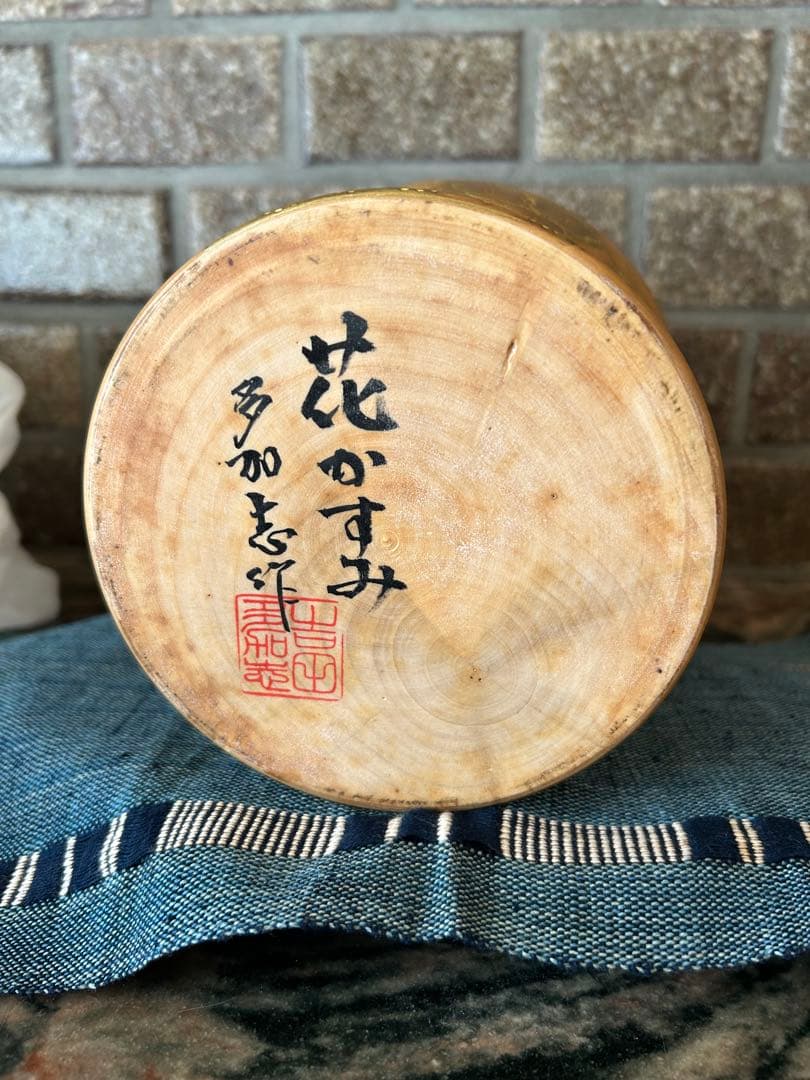 花かすみ
多加志作
吉田
多加志